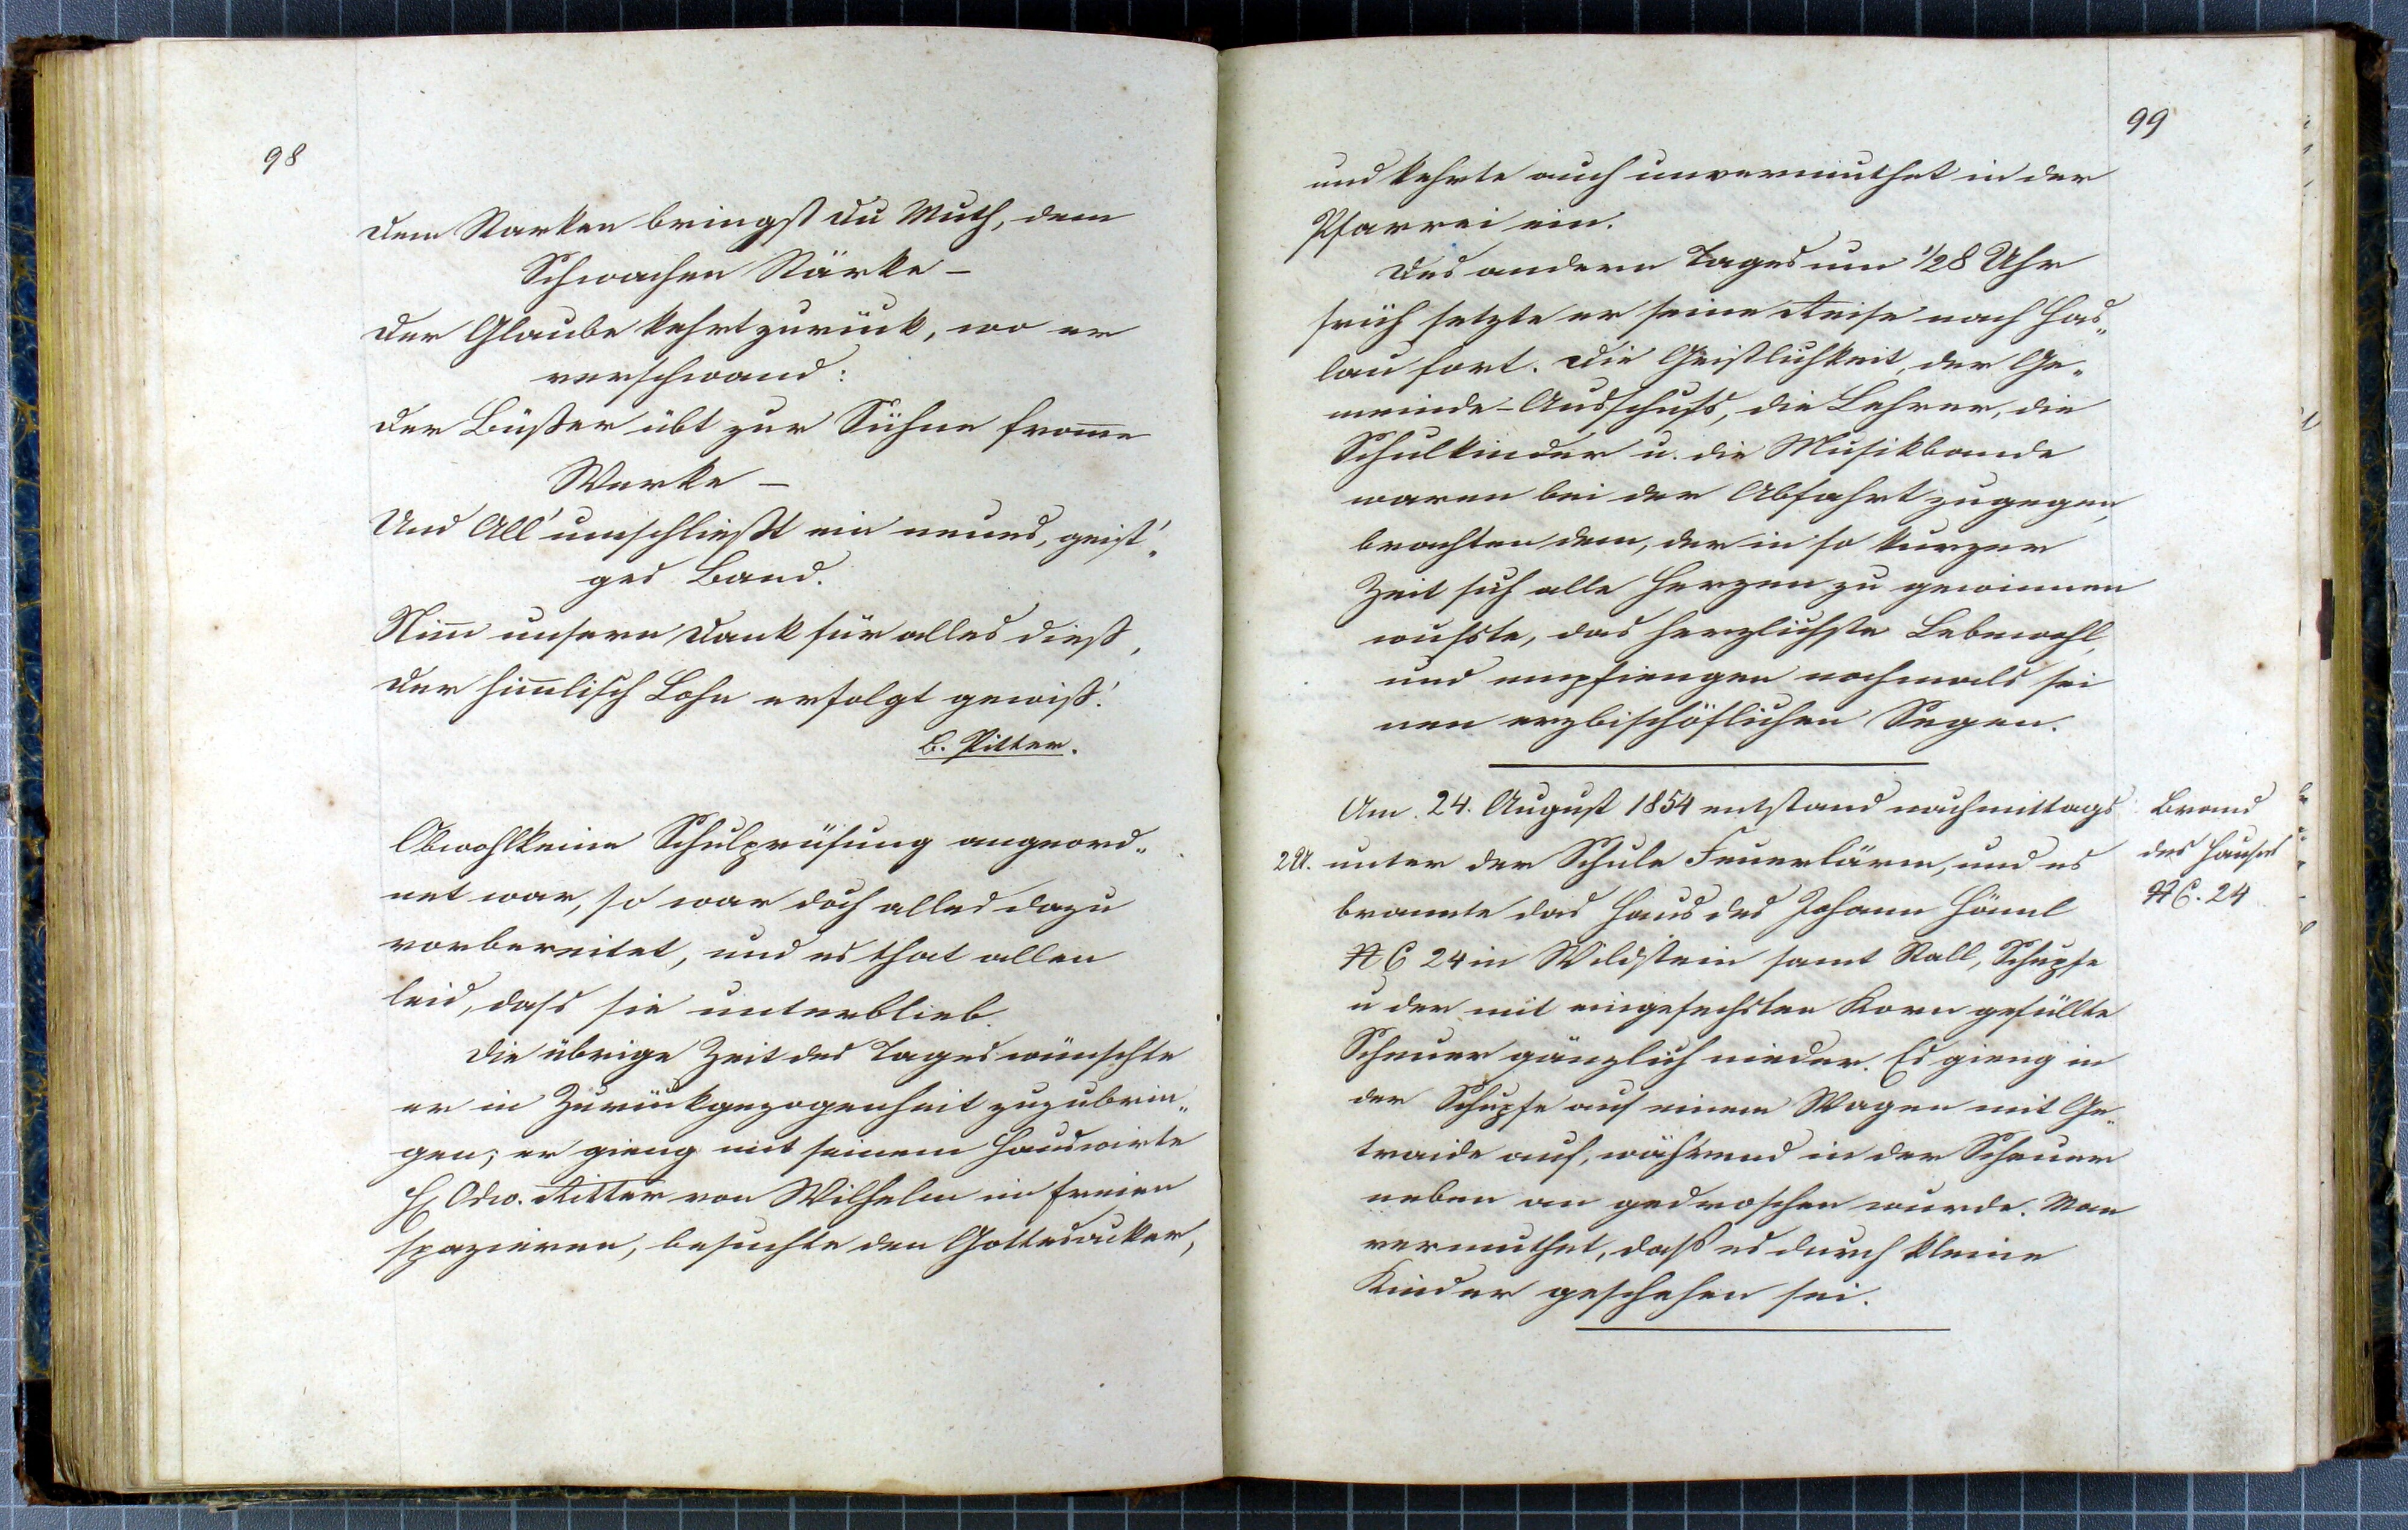 98
Dem Starken bringst du Muth, dem
Schwachen Stärke –
Der Glaube kehrt zurück, wo er
verschwand:
Der Büßer übt zur Sühne frome
Werke –
Und All' umschließt ein neues, geist'„
ges Band.
Nim unsern Dank für alles dieß,
Der himlisch Lohn erfolgt gewiß!
B. Pitter.
Obwohl keine Schulprüfung angeord„
net war, so war doch alles dazu
vorbereitet, und es that allen
leid, dass sie unterblieb.
Die übrige Zeit des Tages wünschte
er in Zurückgezogenheit zuzubrin„
gen; er gieng mit seinem Hauswirte
H. Odw. Ritter von Wilhelm im Freien
spazieren, besuchte den Gottesacker,
99
und kehrte auch unvermuthet in der
Pfarrei ein.
Des andern Tages um 1/28 Uhr
früh setzte er seine Reise nach Has„
lau fort. Die Geistlichkeit, der Ge„
meinde-Ausschuss, die Lehrer, die
Schulkinder u. die Musikbande
waren bei der Abfahrt zugegen,
brachten dem, der in so kurzer
Zeit sich alle Herzen zu gewinnen
wusste, das herzlichste Lebewohl,
und empfiengen nochmals sei
nen erzbischöflichen Segen.
Am 24. August 1854 entstand nachmittags
2 U. unter der Schule Feuerlärm, und es
brannte das Haus des Johann Hönnl
NC 24 in Wildstein samt Stall, Schupfe
u der mit eingefechsten Korn gefüllte
Scheuer gänzlich nieder. Es gieng in
der Schupfe auf einem Wagen mit Ge„
traide auf, während in der Scheuer
neben an gedroschen wurde. Man
vermuthet, daß es durch kleine
Kinder geschehen sei.
Brand
des Hauses
NC. 24